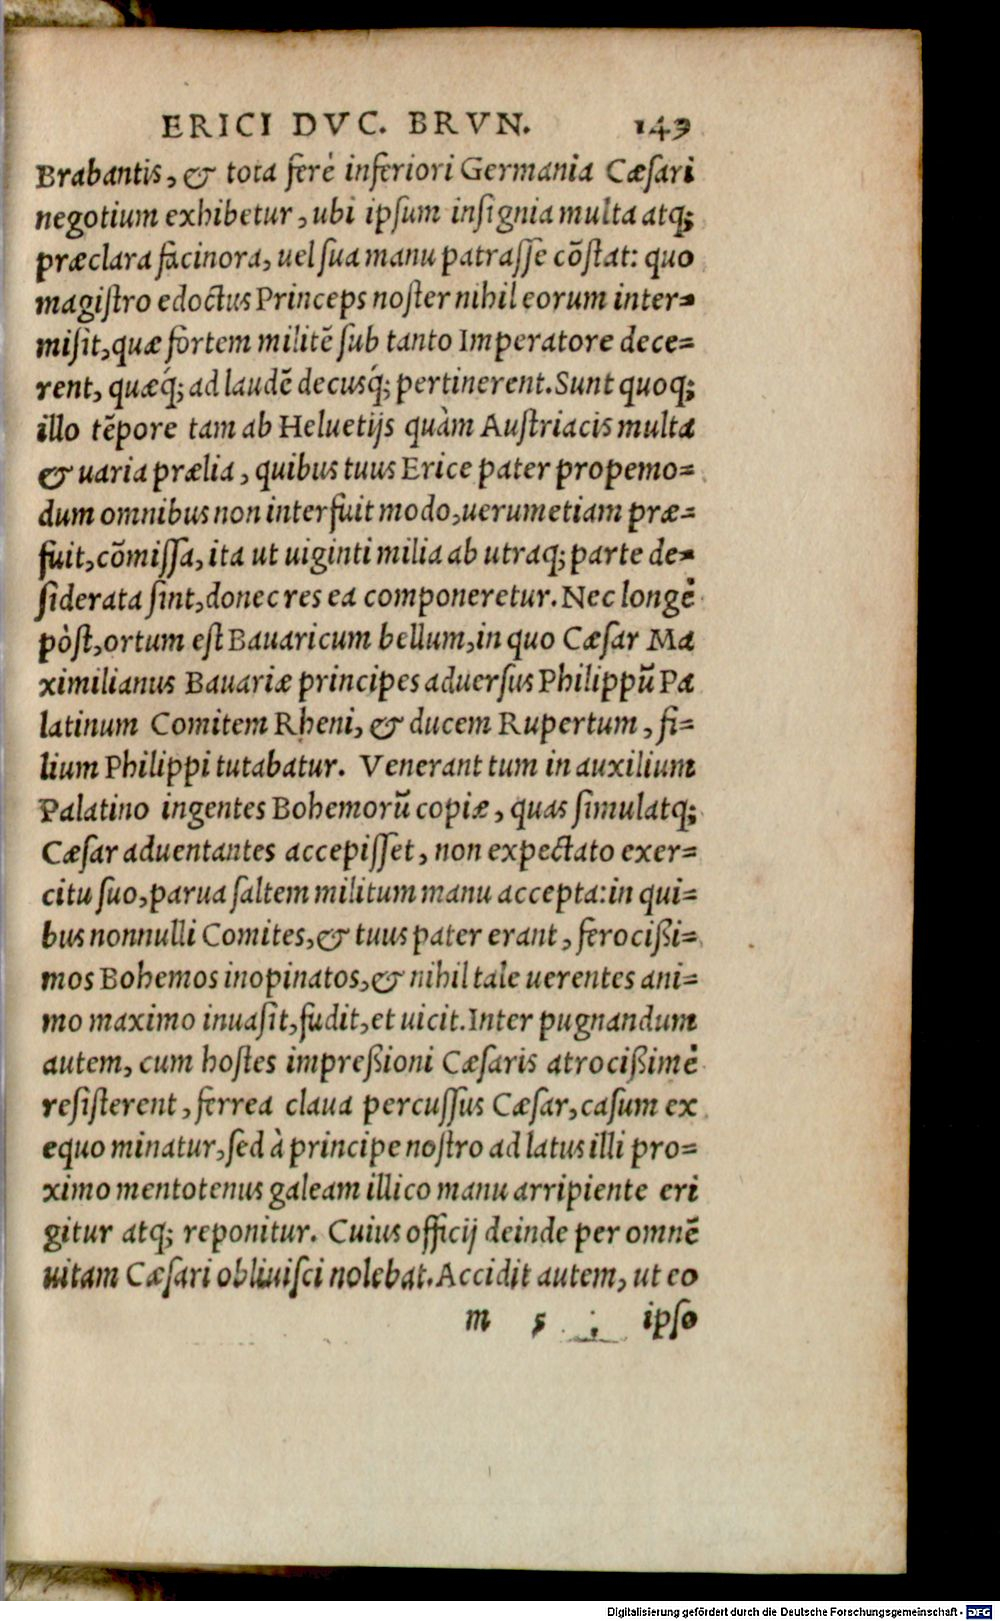 ERICI DVC. BRVN. 149
Brabantis, & tota ferè inferiori Germania Cæsari
negotium exhibetur, ubi ipsum insignia multa atq;
præclara facinora, uel sua manu patrasse cõstat: quo
magistro edoctus Princeps noster nihil eorum inter=
misit, quæ fortem militẽ sub tanto Imperatore dece=
rent, quæq́; ad laudẽ decusq́; pertinerent. Sunt quoq;
illo tẽpore tam ab Heluetijs quàm Austriacis multa
& uaria prælia, quibus tuus Erice pater propemo=
dum omnibus non interfuit modo, uerumetiam præ=
fuit, cõmissa, ita ut uiginti milia ab utraq; parte de=
siderata sint, donec res ea componeretur. Nec longè
pòst, ortum est Bauaricum bellum, in quo Cæsar Ma
ximilianus Bauariæ principes aduersus Philippũ Pa
latinum Comitem Rheni, & ducem Rupertum, fi=
lium Philippi tutabatur. Venerant tum in auxilium
Palatino ingentes Bohemorũ copiæ, quas simulatq;
Cæsar aduentantes accepisset, non expectato exer=
citu suo, parua saltem militum manu accepta: in qui=
bus nonnulli Comites, & tuus pater erant, ferocißi=
mos Bohemos inopinatos, & nihil tale uerentes ani=
mo maximo inuasit, fudit, et uicit. Inter pugnandum
autem, cum hostes impreßioni Cæsaris atrocißimè
resisterent, ferrea claua percussus Cæsar, casum ex
equo minatur, sed à principe nostro ad latus illi pro=
ximo mentotenus galeam illico manu arripiente eri
gitur atq; reponitur. Cuius officij deinde per omnẽ
uitam Cæsari obliuisci nolebat. Accidit autem, ut eo
m 5 ; ipso
Digitalisierung gefördert durch die Deutsche Forschungsgemeinschaft - DFG